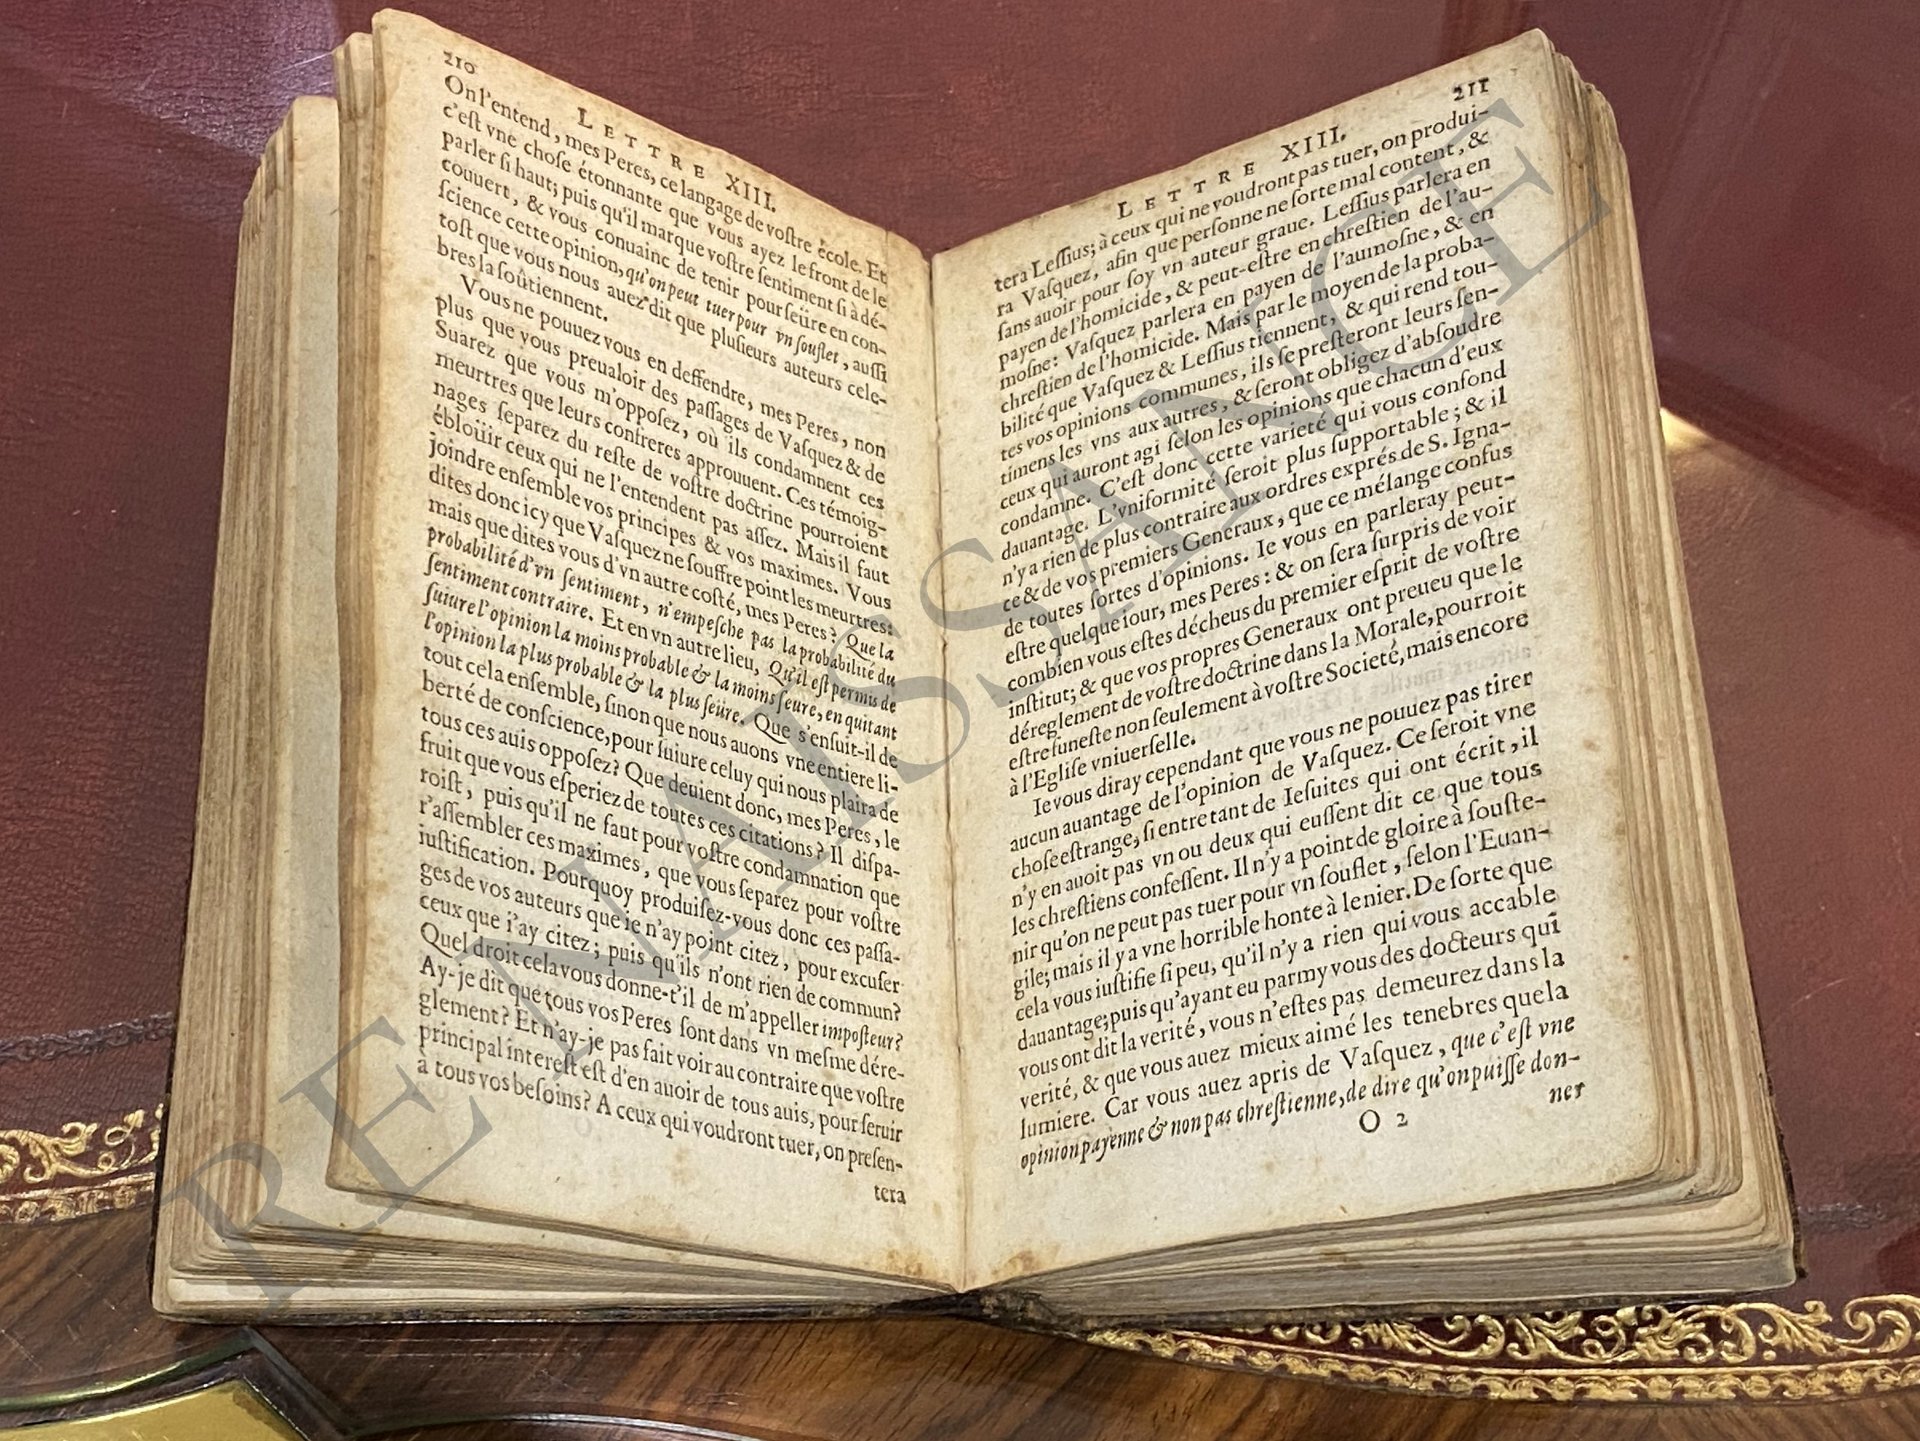 210
LETTRE XIII.
On l'entend, mes Peres, ce langage de voſtre école. Et
c'eſt vne choſe étonnante que vous ayez le front de le
parler ſi haut; puis qu'il marque voſtre ſentiment ſi à dé-
couuert, & vous conuainc de tenir pour ſeûre en con-
ſcience cette opinion, qu'on peut tuer pour vn ſouflet, auſſi
toſt que vous nous auez dit que pluſieurs auteurs cele-
bres la ſoûtiennent.
Vous ne pouuez vous en deffendre, mes Peres, non
plus que vous preualoir des paſſages de Vaſquez & de
Suarez que vous m'oppoſez, où ils condamnent ces
meurtres que leurs confreres approuuent. Ces témoig-
nages ſeparez du reſte de voſtre doctrine pourroient
ébloüir ceux qui ne l'entendent pas aſſez. Mais il faut
joindre enſemble vos principes & vos maximes. Vous
dites donc icy que Vaſquez ne ſouffre point les meurtres:
mais que dites vous d'vn autre coſté, mes Peres? Que la
probabilité d'vn ſentiment, n'empeſche pas la probabilité du
ſentiment contraire. Et en vn autre lieu, Qu'il eſt permis de
ſuiure l'opinion la moins probable & la moins ſeure, en quitant
l'opinion la plus probable & la plus ſeûre. Que s'enſuit-il de
tout cela enſemble, ſinon que nous auons vne entiere li-
berté de conſcience, pour ſuiure celuy qui nous plaira de
tous ces auis oppoſez? Que deuient donc, mes Peres, le
fruit que vous eſperiez de toutes ces citations? Il diſpa-
roiſt, puis qu'il ne faut pour voſtre condamnation que
r'aſſembler ces maximes, que vous ſeparez pour voſtre
iuſtification. Pourquoy produiſez-vous donc ces paſſa-
ges de vos auteurs que ie n'ay point citez, pour excuſer
ceux que i'ay citez; puis qu'ils n'ont rien de commun?
Quel droit cela vous donne-t'il de m'appeller impoſteur?
Ay-je dit que tous vos Peres ſont dans vn meſme dére-
glement? Et n'ay-je pas fait voir au contraire que voſtre
principal intereſt eſt d'en auoir de tous auis, pour ſeruir
à tous vos beſoins? A ceux qui voudront tuer, on preſen-
tera
211
LETTRE XIII.
tera Leſſius; à ceux qui ne voudront pas tuer, on produi-
ra Vaſquez, afin que perſonne ne ſorte mal content, &
ſans auoir pour ſoy vn auteur graue. Leſſius parlera en
payen de l'homicide, & peut-eſtre en chreſtien de l'au-
moſne: Vaſquez parlera en payen de l'aumoſne, & en
chreſtien de l'homicide. Mais par le moyen de la proba-
bilité que Vaſquez & Leſſius tiennent, & qui rend tou-
tes vos opinions communes, ils ſe preſteront leurs ſen-
timens les vns aux autres, & ſeront obligez d'abſoudre
ceux qui auront agi ſelon les opinions que chacun d'eux
condamne. C'eſt donc cette varieté qui vous confond
dauantage. L'vniformité ſeroit plus ſupportable; & il
n'y a rien de plus contraire aux ordres exprés de S. Igna-
ce & de vos premiers Generaux, que ce mélange confus
de toutes ſortes d'opinions. Ie vous en parleray peut-
eſtre quelque iour, mes Peres: & on ſera ſurpris de voir
combien vous eſtes décheus du premier eſprit de voſtre
inſtitut; & que vos propres Generaux ont preueu que le
déreglement de voſtre doctrine dans la Morale, pourroit
eſtre funeſte non ſeulement à voſtre Societé, mais encore
à l'Egliſe vniuerſelle.
Ie vous diray cependant que vous ne pouuez pas tirer
aucun auantage de l'opinion de Vaſquez. Ce ſeroit vne
choſe eſtrange, ſi entre tant de Ieſuites qui ont écrit, il
n'y en auoit pas vn ou deux qui euſſent dit ce que tous
les chreſtiens confeſſent. Il n'y a point de gloire à ſouſte-
nir qu'on ne peut pas tuer pour vn ſouflet, ſelon l'Euan-
gile; mais il y a vne horrible honte à le nier. De ſorte que
cela vous iuſtifie ſi peu, qu'il n'y a rien qui vous accable
dauantage; puis qu'ayant eu parmy vous des docteurs qui
vous ont dit la verité, vous n'eſtes pas demeurez dans la
verité, & que vous auez mieux aimé les tenebres que la
lumiere. Car vous auez apris de Vaſquez, que c'eſt vne
opinion payenne & non pas chreſtienne, de dire qu'on puiſſe don-
O 2
ner
RENAISSANCE